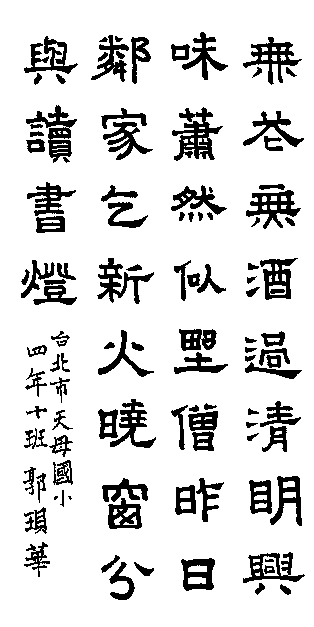 無花無酒過清明興
味蕭然似野僧昨日
鄰家乞新火曉窗分
與讀書燈
台北市天母國小
四年十班 郭瑣華